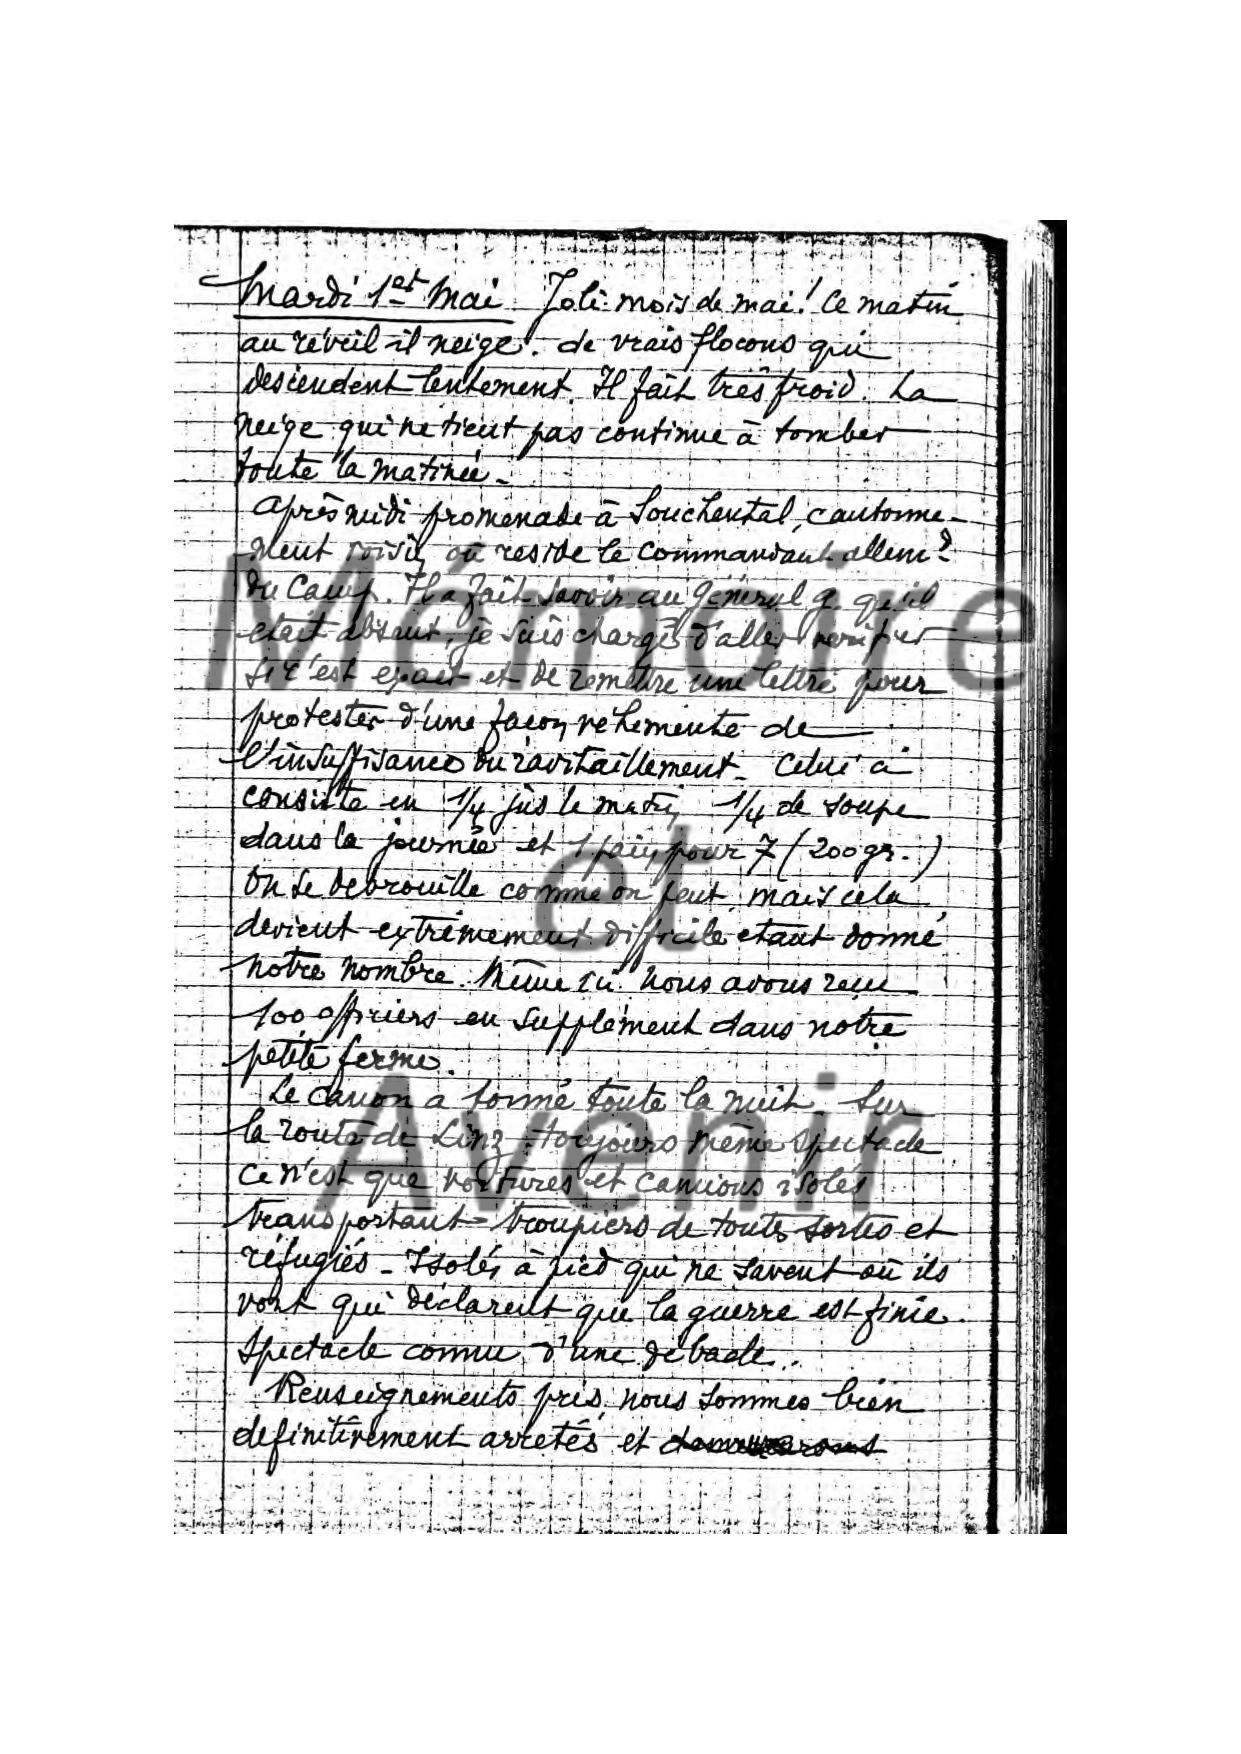 Mardi 1er Mai Joli mois de mai! Ce matin
au réveil il neige. de vrais flocons qui
descendent lentement. Il fait très froid. La
neige qui ne tient pas continue à tomber
toute la matinée.
Après midi promenade à cantonne-
ment voisin où reside le commandant allemd
du Camp. Il a fait savoir au Général g. qu'il
etait absent, je suis chargé d'aller verifier
si c'est exact et de remettre une lettre pour
protester d'une façon véhemente de
l'insuffisance du ravitaillement. Celui ci
consiste en 1/4 jus le matin, 1/4 de soupe
dans la journée et 1 pain pour 7 (200 gr.)
On se debrouille comme on peut, mais cela
devient extrêmement difficile etant donné
notre nombre. Même ici nous avons reçu
100 officiers en supplément dans notre
petite ferme.
Le canon a tonné toute la nuit. Sur
la route de Linz, toujours même spectacle
ce n'est que voitures et camions isolés
transportant troupiers de toutes sortes et
réfugiés - Isolés à pied qui ne savent où ils
vont qui déclarent que la guerre est finie.
Spectacle connu d'une débacle..
Renseignements pris, nous sommes bien
definitivement arretés et
Mémoire
et
Avenir